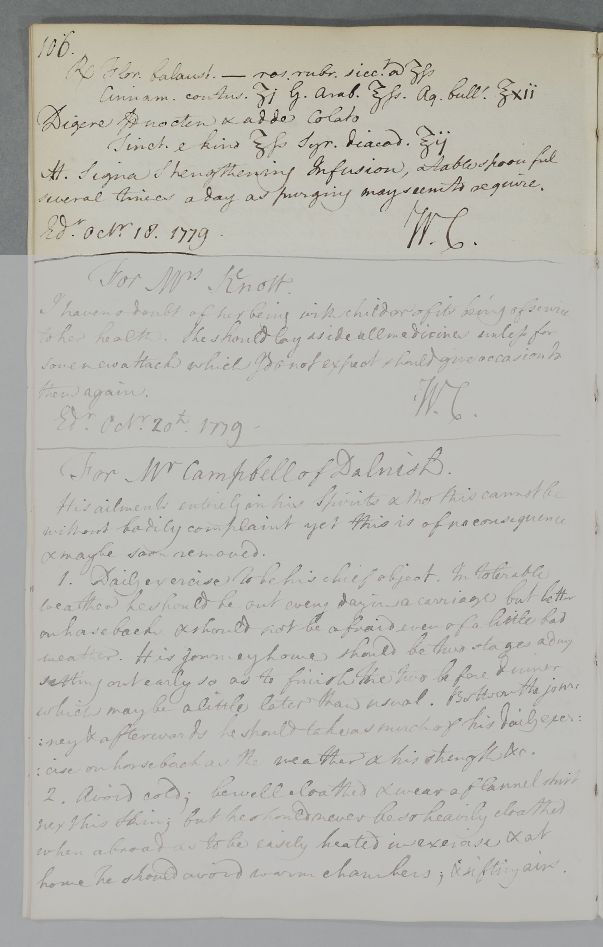 106.
℞ Flor. balaust. — ros. rubr. siccr. a ʒſs
Cinnam. contus. ʒj G. Arab. ʒſs. Aq. bull. ℥xii
Digere ℔ noctem & adde Colato
Tinct. e kino ℥ſs Syr. diacod. ℥ij
M. Signa Strengthening Infusion, a tablespoonful
several times a day as purging may seem to require.
Edr. Octr. 18. 1779.
W. C.
For Mrs Knott.
I have no doubt of her being with child or of its being of service
to her health. She should lay aside all medicines unless for
some new attack which I do not expect should give occasion to
them again.
W. C.
Edr. Octr. 20th. 1779 -
For Mr Campbell of Dalnish.
His ailments entirely in his Spirits & tho this cannot be
without bodily complaint yet this is of no consequence
& may be soon removed.
1. Daily exercise to be his chief object. In tolerable
weather he should be out every day in a carriage but better
on horseback & should not be afraid even of a little bad
weather. His journey home should be two stages a day
setting out early so as to finish the two before dinner
which may be a little later than usual. Both on the jour:
:ney & afterwards he should take as much of his daily exer:
:cise on horseback as the weather & his strength &c.
2. Avoid cold; be well cloathed & wear a flannel shirt
next his Skin; but he should never be so heavily cloathed
when abroad as to be easily heated in exercise & at
home he should avoid warm chambers; & sifting air.